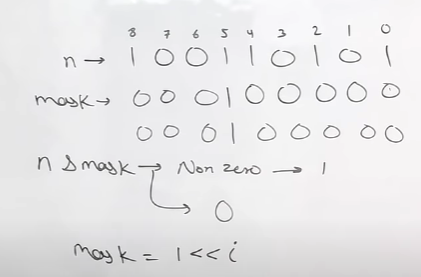 8 7 6 5 4 3 2 1 0
n → 1 0 0 1 1 0 1 0 1
mask → 0 0 0 1 0 0 0 0 0
0 0 0 1 0 0 0 0 0
n & mask → Non zero → 1
→ 0
mask = 1 << i